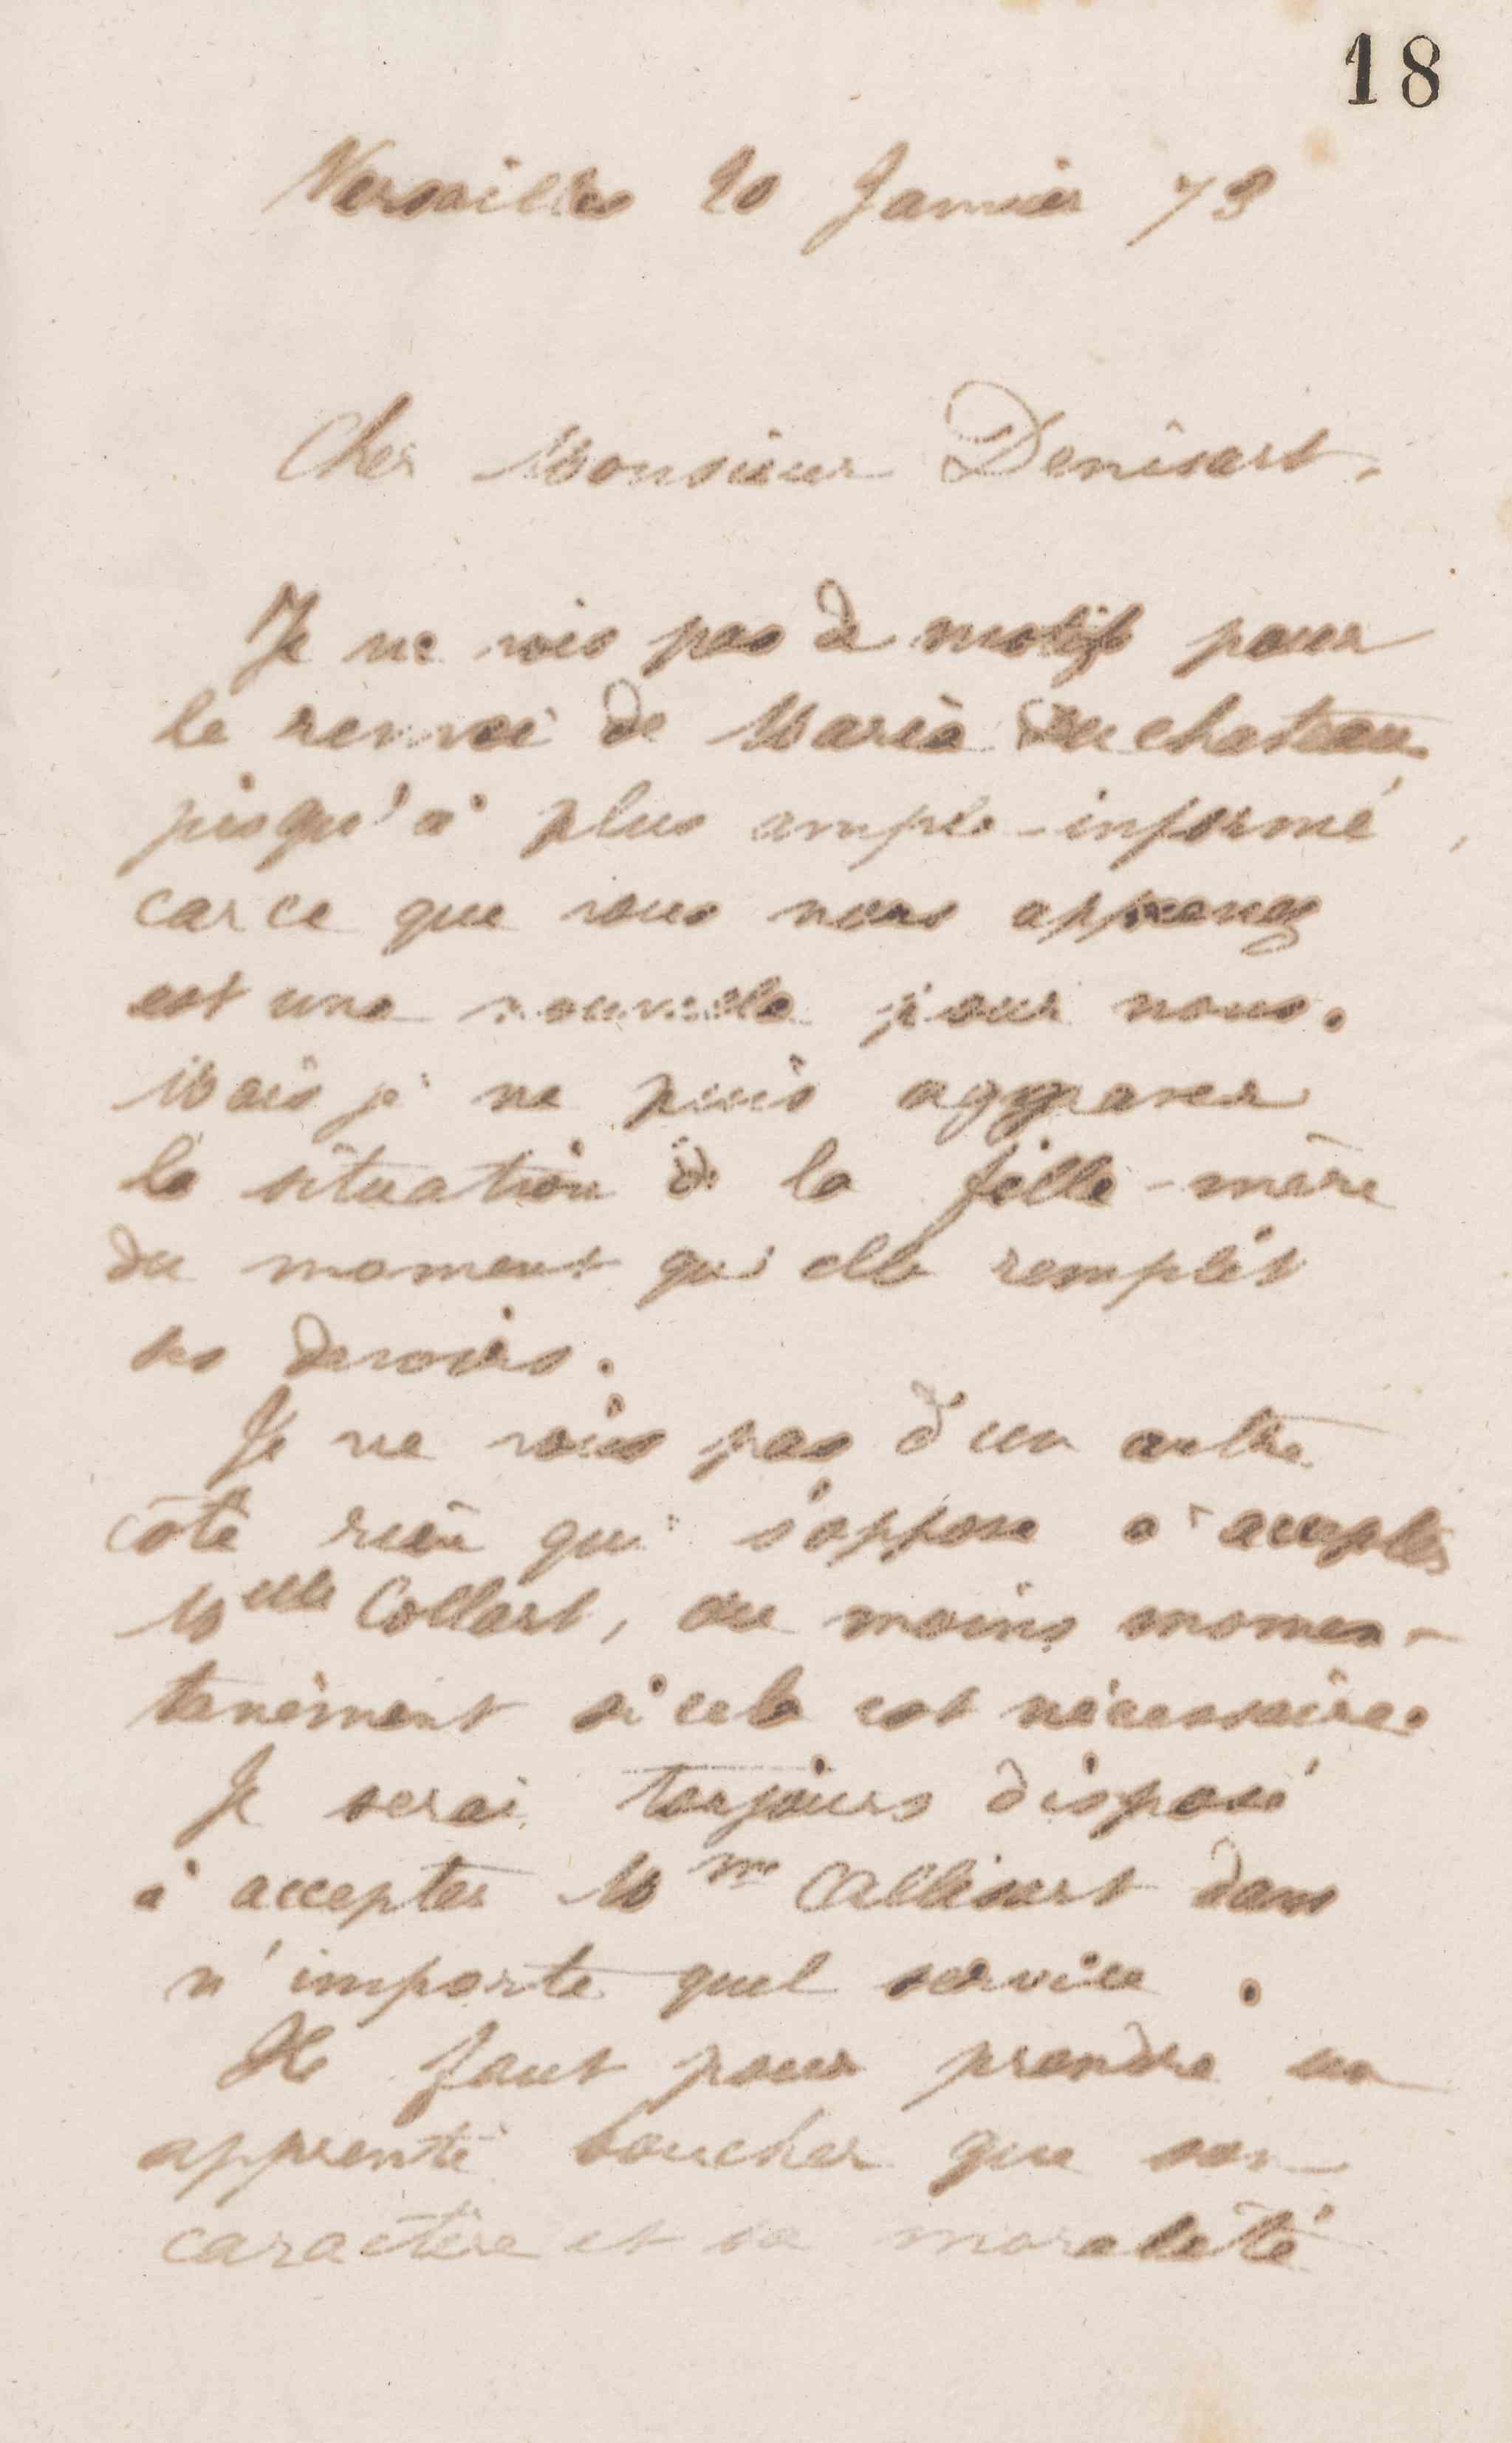 18
Versailles 20 Janvier 73
Cher Monsieur Denisart,
Je ne vois pas de motifs pour
le renvoi de Maria Duchateau
jusqu'à plus ample-informé,
car ce que vous nous apprenez
est une nouvelle pour nous.
Mais je ne puis aggraver
la situation de la fille-mère
du moment qu'elle remplit
ses devoirs.
Je ne vois pas d'un autre
côté rien qui s'oppose à accepter
Melle Collart, au moins momen-
tanément si cela est nécessaire.
Je serai toujours disposé
à accepter Mme Allisart dans
n'importe quel service.
Il faut pour prendre un
apprenti boucher que son
caractère et sa moralité